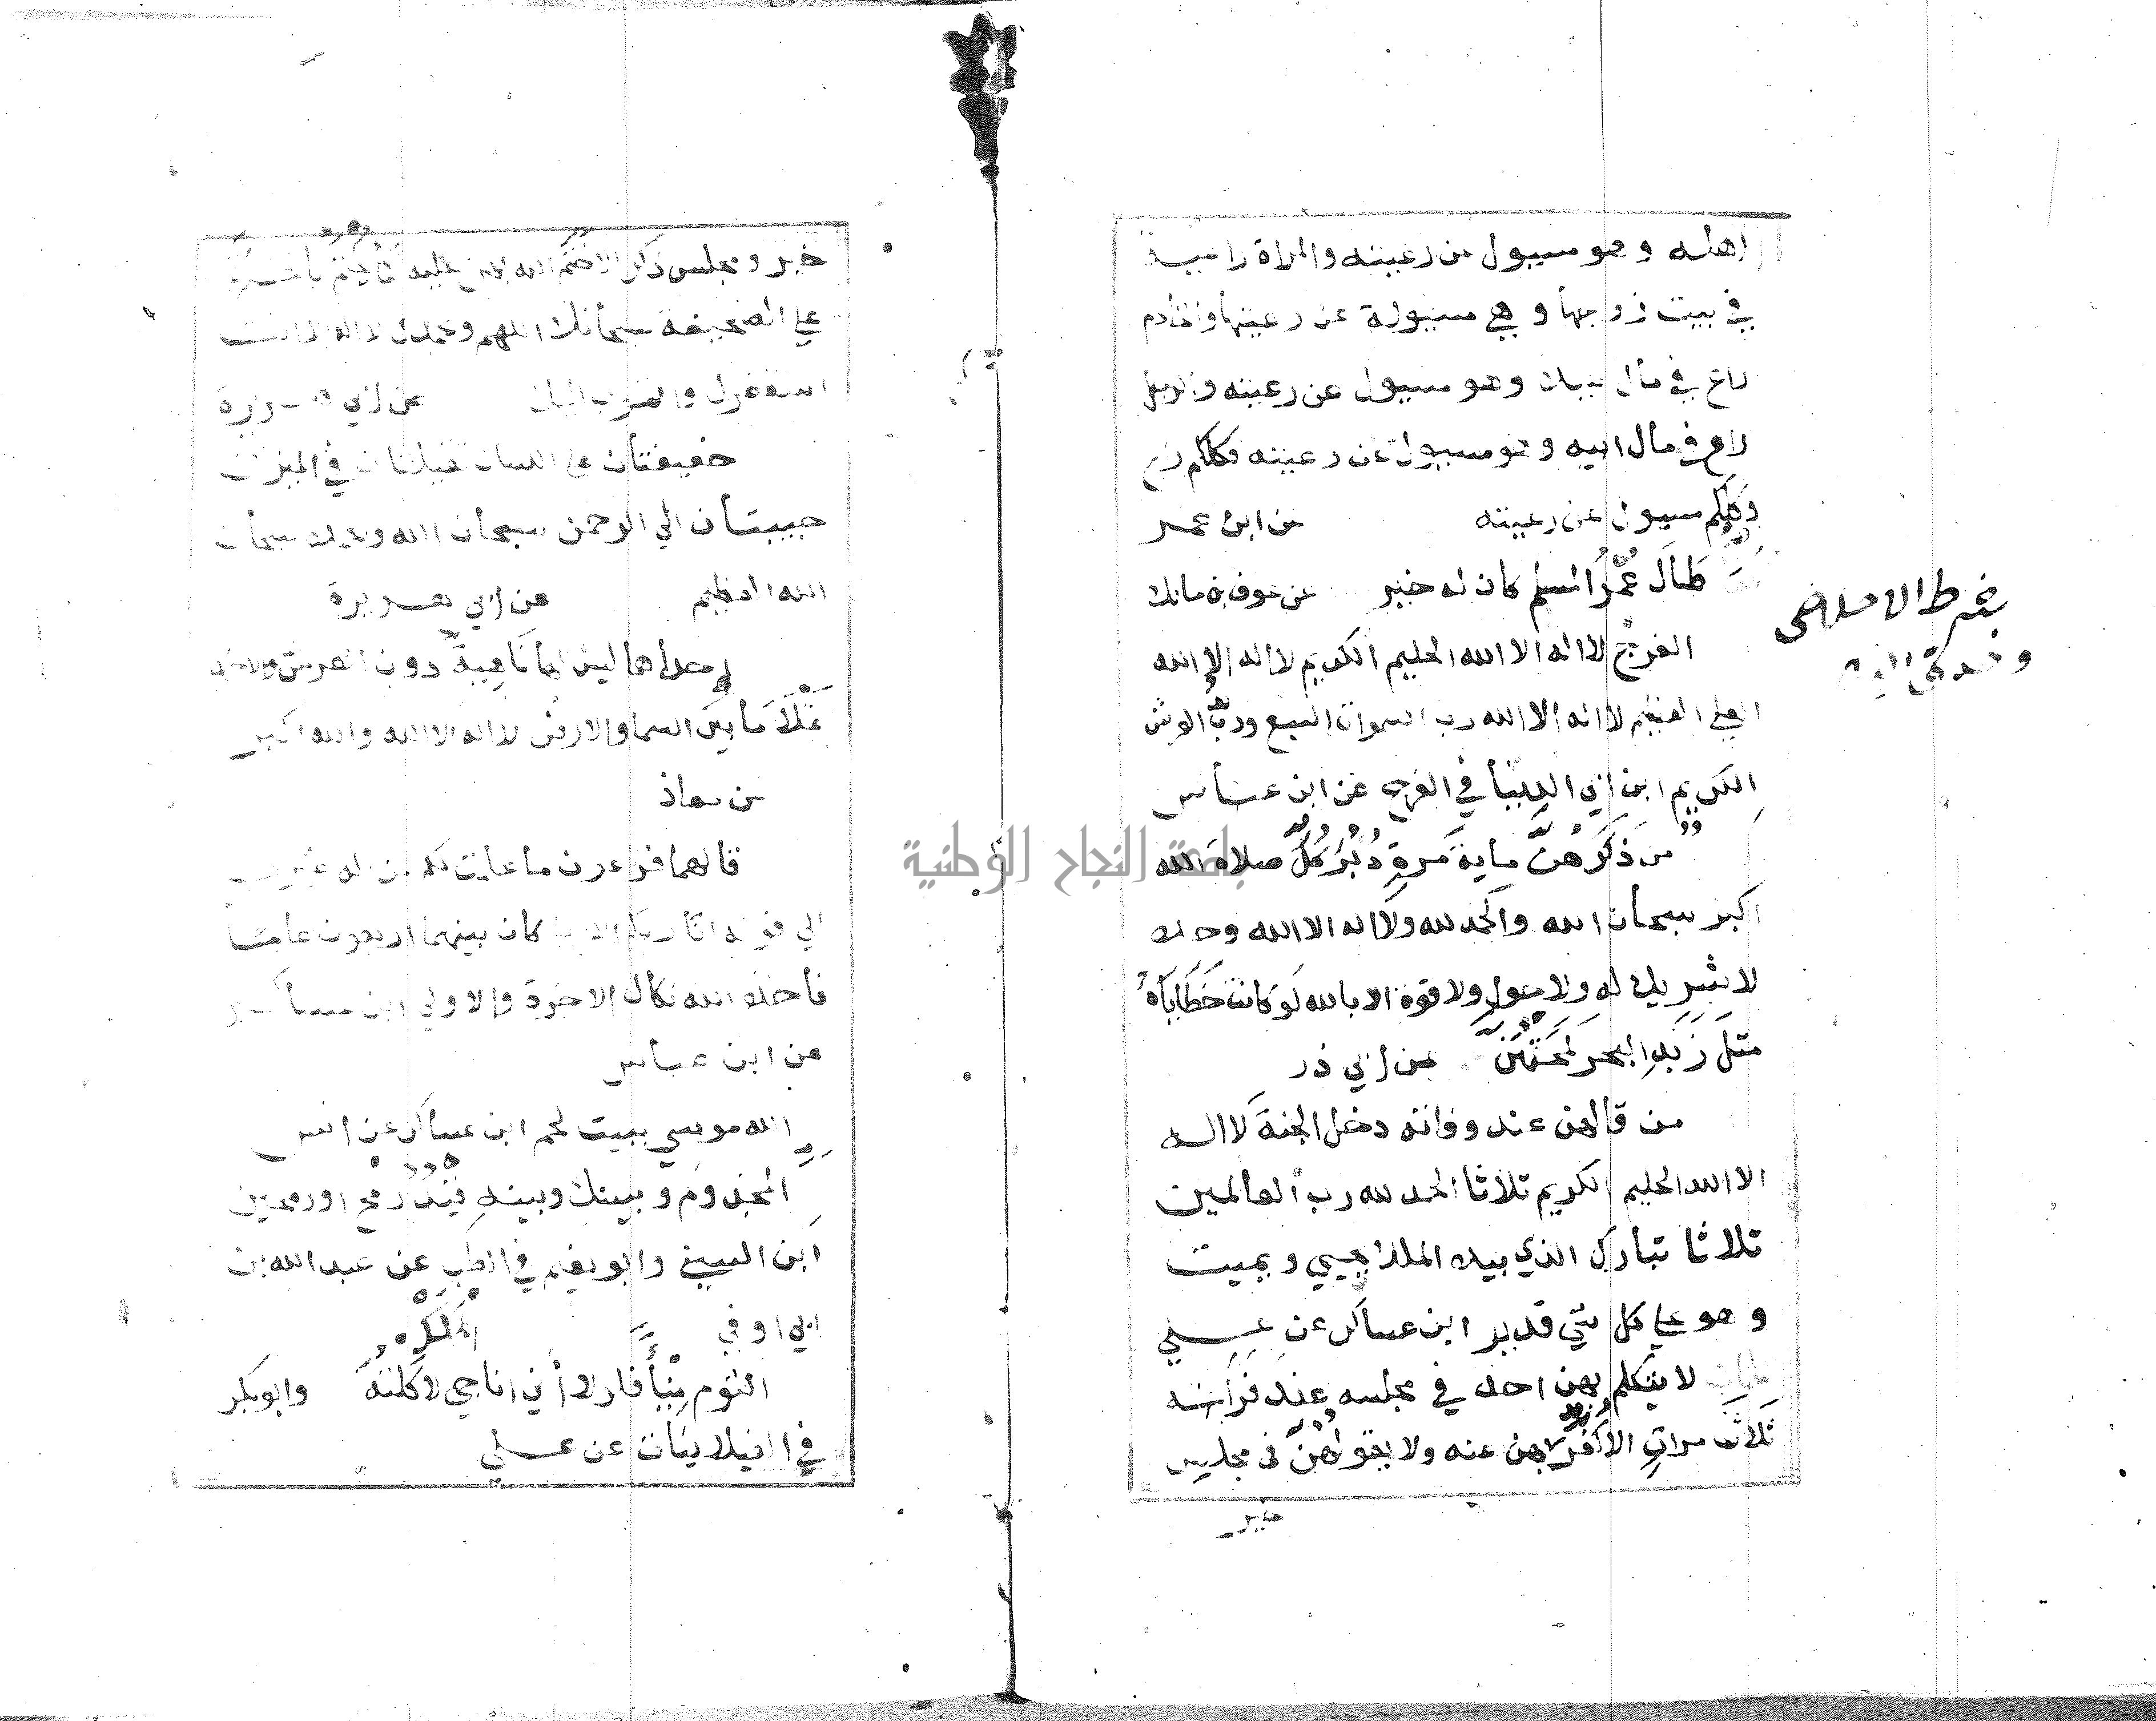 اهله وهو مسيول عن رعيته والمراة راعية
في بيت زوجها وهي مسيولة عن رعيتها والخادم
راع في مال سيده وهو مسيول عن رعيته والرجل
راع في مال ابيه وهو مسيول عن رعيته فكلكم راع
وكلكم مسيول عن رعيته عن ابن عمر
طَالَ عُمْرُ المسلم كان له خير عن عوف بن مالك
الفرج لا اله الا الله الحليم الكريم لا اله الا الله
العلي العظيم لا اله الا الله رب السموات السبع ورب العرش
الكريم ابن ابي الدنيا في الفرج عن ابن عباس
من ذَكَرَهُنَّ ماية مَرة دُبُرَ كُلِّ صلاة الله
اكبر سبحان الله والحمد لله ولا اله الا الله وحده
لا شريك له ولا حول ولا قوة الا بالله لو كانت خَطَايَاهُ
مثل زَبَدِ البحر لمَحَتْهُنَّ عن ابي ذر
من قالهن عند وفاته دخل الجنة لا اله
الا الله الحليم الكريم ثلاثا الحمد لله رب العالمين
ثلاثا تبارك الذي بيده الملك يحيي ويميت
وهو علي كل شي قدير ابن عساكر عن علي
لا يتكلم بهن احد في مجلسه عند فراغه
ثَلاثَ مرات الا كُفِّرَ بهن عنه ولا يقولهُنَّ في مجلس
خير
بشرط الاخلاص
وصدق النية
خير ومجلس ذكر الا ختم الله بهن عليه كما يختم بالخاتم
علي الصحيفة سبحانك اللهم وبحمدك لا اله الا انت
استغفرك واتوب اليك عن ابي هريرة
خفيفتان علي اللسان ثقيلتان في الميزان
حبيبتان الي الرحمن سبحان الله وبحمده سبحان
الله العظيم عن ابي هريرة
احداهما ليس لها نَاهِيَةٌ دون العرش والاخري
تَمْلَأُ ما بين السما والارض لا اله الا الله والله اكبر
عن معاذ
قالهما فرعون ما علمت لكم من اله غيري
الي قوله انا ربكم الاعلي كان بينهما اربعون عاما
فاخذه الله نكال الاخرة والاولي ابن عساكر
عن ابن عباس
الله موسي ببيت لحم ابن عساكر عن انس
المجذوم وبينك وبينه قِيْدُ رمح او رمحين
ابن السني وابو نعيم في الطب عن عبد الله بن
ابي اوفي
الثوم نِيْأً فلولا أني اناجي لاكلتهُ وابو بكر
في الغيلانيات عن علي
جامعة النجاح الوطنية